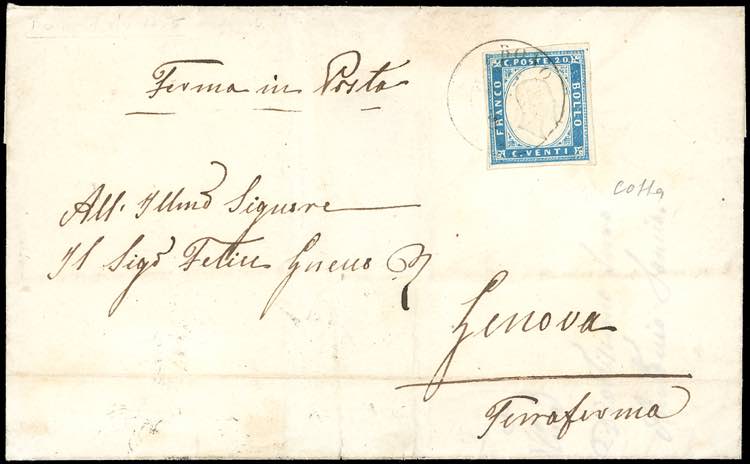 Ferma in Posta
BO O
C. POSTE. 20.
FRANCO
BOLLO
C. VENTI
Cotta
All' Illmo Signore
Il Sigr Felice Gneco
Genova
Terraferma